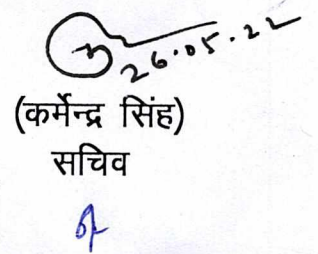 26.05.22
(कर्मेन्द्र सिंह)
सचिव